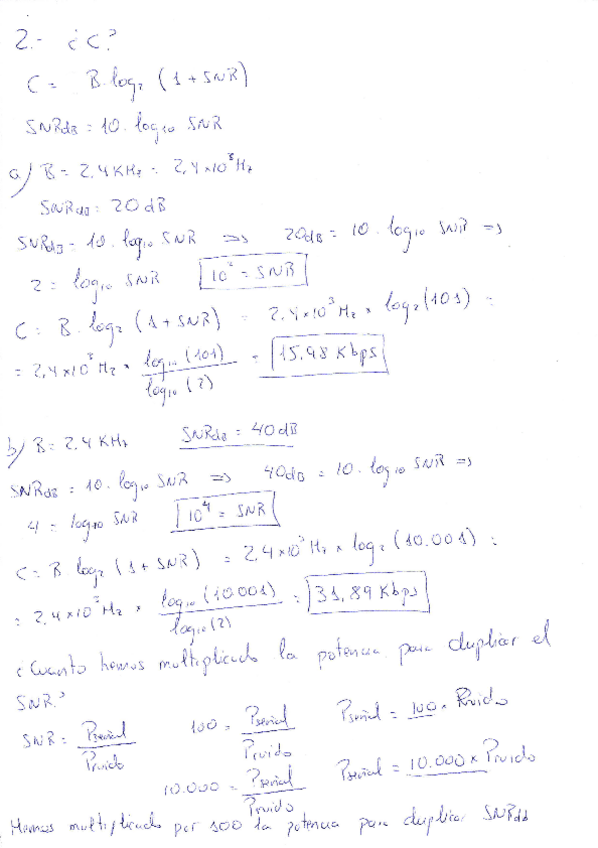 2.- ¿C?
C = B.log₂ (1 + SNR)
SNRdB = 10. log₁₀ SNR
a) B = 2.4 KHz = 2,4×10³Hz
SNRdB = 20dB
SNRdB = 10. log₁₀ SNR => 20dB = 10. log₁₀ SNR =>
2 = log₁₀ SNR 10² = SNR
C = B. log₂ (1 + SNR) = 2.4×10³Hz × log₂(101) =
= 2,4×10³Hz × log₁₀(101) / log₁₀(2) = 15.98 Kbps
b) B = 2.4 KHz SNRdB = 40dB
SNRdB = 10. log₁₀ SNR => 40dB = 10. log₁₀ SNR =>
4 = log₁₀ SNR 10⁴ = SNR
C = B log₂ (1 + SNR) = 2.4×10³Hz × log₂(10.001) =
= 2,4×10³Hz × log₁₀(10001) / log₁₀(2) = 31,89 Kbps
¿Cuanto hemos multiplicado la potencia para duplicar el
SNR?
SNR = Pseñal / Pruido 100 = Pseñal / Pruido Pseñal = 100 · Pruido
10.000 = Pseñal / Pruido Pseñal = 10.000 × Pruido
Hemos multiplicado por 100 la potencia para duplicar SNRdB